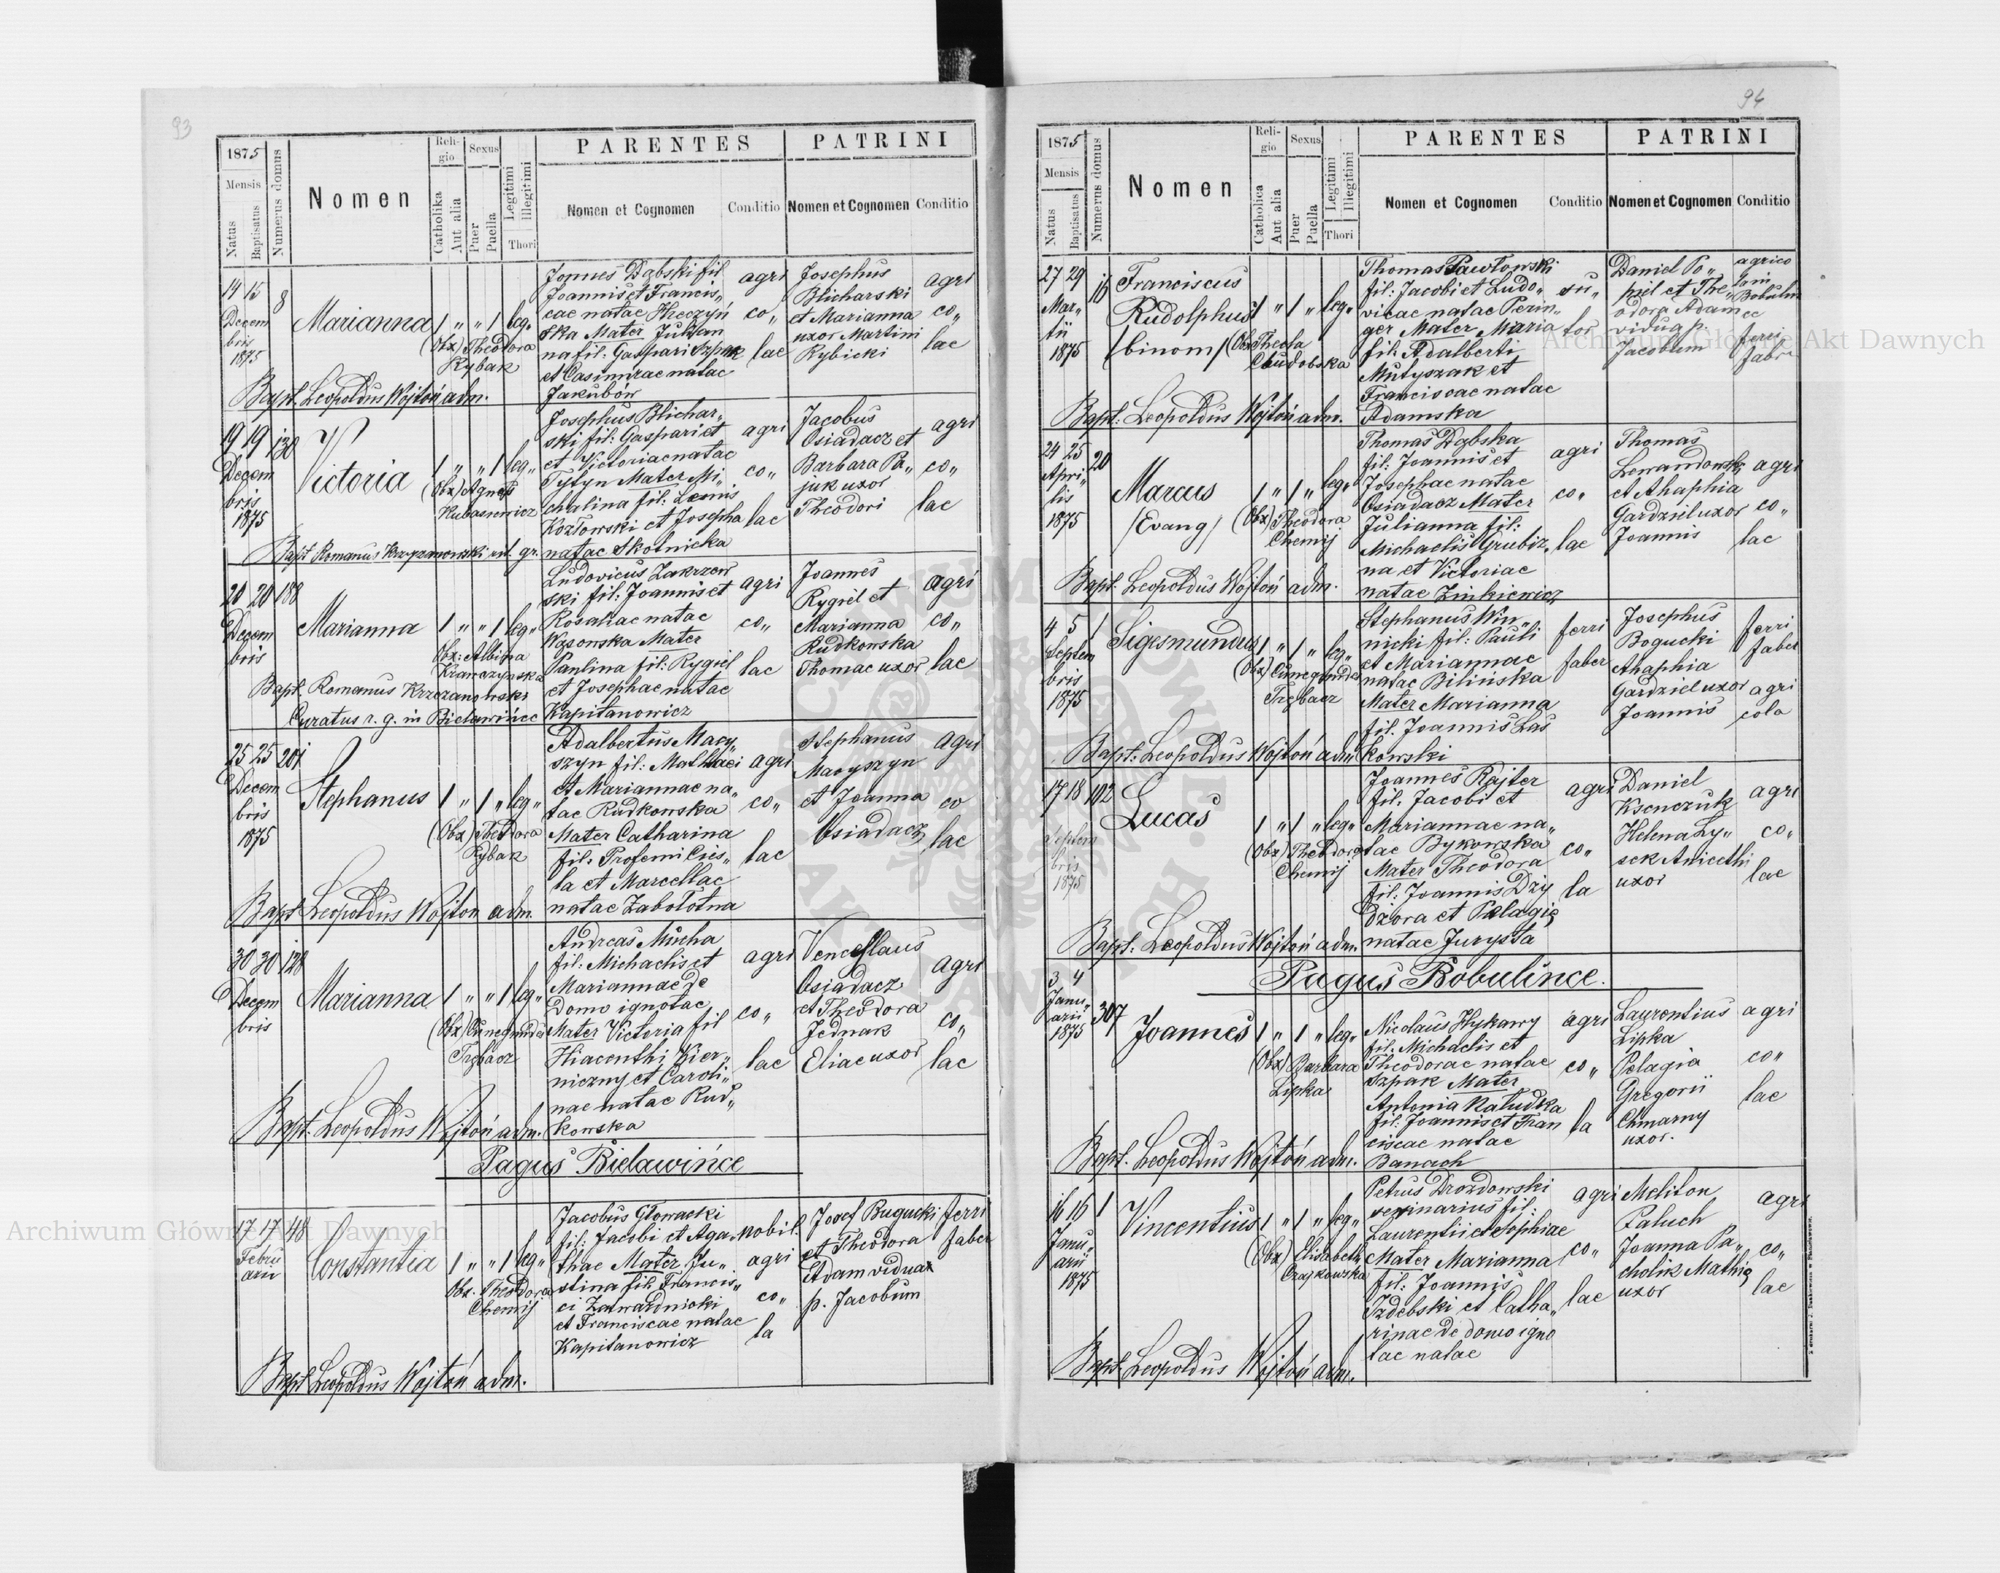 93
1875
Mensis
Natus
Baptisatus
Numerus domus
Nomen
Religio
Catholika
Aut alia
Sexus
Puer
Puella
Legitimi
Illegitimi
Thori
PARENTES
Nomen et Cognomen
Conditio
PATRINI
Nomen et Cognomen
Conditio
14 15 8
Decem
bris
1875
Marianna 1 " " 1 leg"
(Obx) Theodora
Rybak
Joannes Dąbski fil
Joannis et Francis"
cae natae
ska Mater Julian
na fil: Gaspari Szpak
et Casimirae natae
Jakubów
agri
co"
lae
Josephus
Blicharski
et Marianna
uxor Martini
Rybicki
agri
co"
lae
Bapt. Leopoldus Wojtoń adm.
19 19 130
Decem
bris
1875
Victoria 1 " " 1 leg"
(Obx) Agnes
Kubasiewicz
Josephus Blichar"
ski fil: Gaspari et
et Victoriae natae
Tytyn Mater Mi"
chalina fil:
Kozłowski et Josepha
natae Skotnicka
agri
co"
lac
Jacobus
Osiadacz et
Barbara Pa"
juk uxor
Theodori
agri
co"
lac
Bapt. Romanus Krzyzanowski rit. gr.
20 20 188
Decem
bris
Marianna 1 " " 1 leg"
Obx: Albina
Krawczynska
Ludovicus Zakrzew
ski fil: Joannis et
Rosaliae natae
Wąsowska Mater
Paulina fil: Rygiel
et Josephae natae
Kapitanowicz
agri
co"
lac
Joannes
Rygiel et
Marianna
Rudkowska
Thomae uxor
agri
co"
lac
Bapt. Romanus Krzyzanowski
Curatus r. g. in Bielawińce
25 25 201
Decem
bris
1875
Stephanus 1 " 1 " leg"
(Obx) Theodora
Rybak
Adalbertus Mary"
szyn fil: Mathaei
et Mariannae na"
tae Rudkowska
Mater Catharina
fil:
la et Marcellae
natae Zabołotna
agri
co"
lac
Stephanus
Maryszyn
et Joanna
Osiadacz
agri
co
lac
Bapt. Leopoldus Wojton adm.
30 30 128
Decem
bris
Marianna 1 " " 1 leg"
(Obx) Cunegunda
Trębacz
Andreas Mucha
fil: Michaelis et
Mariannae de
Domo ignotae
Mater Victoria fil
Hiacenthi Kier"
niczny et Caroli"
nae natae Rud"
kowska
agri
co"
lac
Venceslaus
Osiadacz
et Theodora
Jednak
Eliae uxor
agri
co"
lac
Bapt. Leopoldus Wojtoń adm.
Pagus Bielawińce
17 17 48
Febru
arii
Constantia 1 " " 1 leg"
Obx. Theodora
Chemij
Jacobus Głowacki
fil: Jacobi et Aga
thae Mater Ju"
stina fil: Francis"
ci Zatwardnicki
et Franciscae natae
Kapitanowicz
nobil.
agri
co"
la
Josef Bugucki
et Theodora
Adam vidua
p. Jacobum
ferri
faber
Bapt. Leopoldus Wojtoń adm.
94
1875
Mensis
Natus
Baptisatus
Numerus domus
Nomen
Religio
Catholica
Aut alia
Sexus
Puer
Puella
Legitimi
Illegitimi
Thori
PARENTES
Nomen et Cognomen
Conditio
PATRINI
Nomen et Cognomen
Conditio
27 29 16
Mar"
tii
1875
Franciscus
Rudolphus 1 " 1 " leg"
/binom/ (Obx) Thecla
Chudobska
Thomas Pawłowski
fil: Jacobi et Ludo"
vicae natae Perin"
ger Mater Maria
fil: Adalberti
Mutyszak et
Franciscae natae
Adamska
su"
tor
Daniel Po"
piel et The"
odora Adam
vidua p.
Jacobum
agrico
ferri
fabri
Bapt. Leopoldus Wojtoń adm.
24 25 20
Apri"
lis
1875
Marcus 1 " 1 " leg"
/Evang/ (Obx) Theodora
Chemij
Thomas Dąbska
fil: Joannis et
Josephae natae
Osiadacz Mater
Julianna fil:
Michaelis Grubiz"
na et Victoriae
natae Zinkiewicz
agri
co"
lac
Thomas
Lewandowski
et Ahaphia
Gardziel uxor
Joannis
agri
co"
lac
Bapt. Leopoldus Wojtoń adm.
4 5 1
Septem
bris
1875
Sigismundus 1 " 1 " leg"
(Obx) Cunegunda
Trębacz
Stephanus Win"
nicki fil: Pauli
et Mariannae
natae Bilińska
Mater Marianna
fil. Joannis Las
kowski
ferri
faber
Josephus
Bogucki
Ahaphia
Gardziel uxor
Joannis
ferri
faber
agri
cola
Bapt. Leopoldus Wojtoń adm
17 18 102
Septem
bris
1875
Lucas 1 " 1 " leg"
(Obx) Theodora
Chemij
Joannes Rajter
fil. Jacobi et
Mariannae na"
tae Bykowska
Mater Theodora
fil. Joannis Dzy
dzora et Pelagię
natae Jurysta
agri
co"
la
Daniel
Ksenczuk
Helena Ly"
sek Anicethi
uxor
agri
co"
lac
Bapt. Leopoldus Wojtoń adm.
Pagus Bobulince.
3 4 307
Janu"
arii
1875
Joannes 1 " 1 " leg"
(Obx) Barbara
Lipka
Nicolaus Hykawy
fil. Michaelis et
Theodorae natae
Szpak Mater
Antonia Kałudka
fil. Joannis et Fran
ciscae natae
Banach
agri
co"
la
Laurentius
Lipka
Pelagia
Gregorii
Chmarny
uxor.
agri
co"
lac
Bapt. Leopoldus Wojtoń adm.
16 16 1
Janu"
arii
1875
Vincentius 1 " 1 " leg"
(Obx) Elisabeth
Czajkowska
Petrus Drozdowski
fil:
Laurentii et Sophiae
Mater Marianna
fil: Joannis
Izdebski et Catha"
rinae de domo igno
tae natae
agri
co"
lac
Meliton
Paluch
Joanna Pa"
cholik Mathię
uxor
agri
co"
lac
Bapt. Leopoldus Wojtoń adm.
Archiwum Główne Akt Dawnych
Archiwum Główne Akt Dawnych